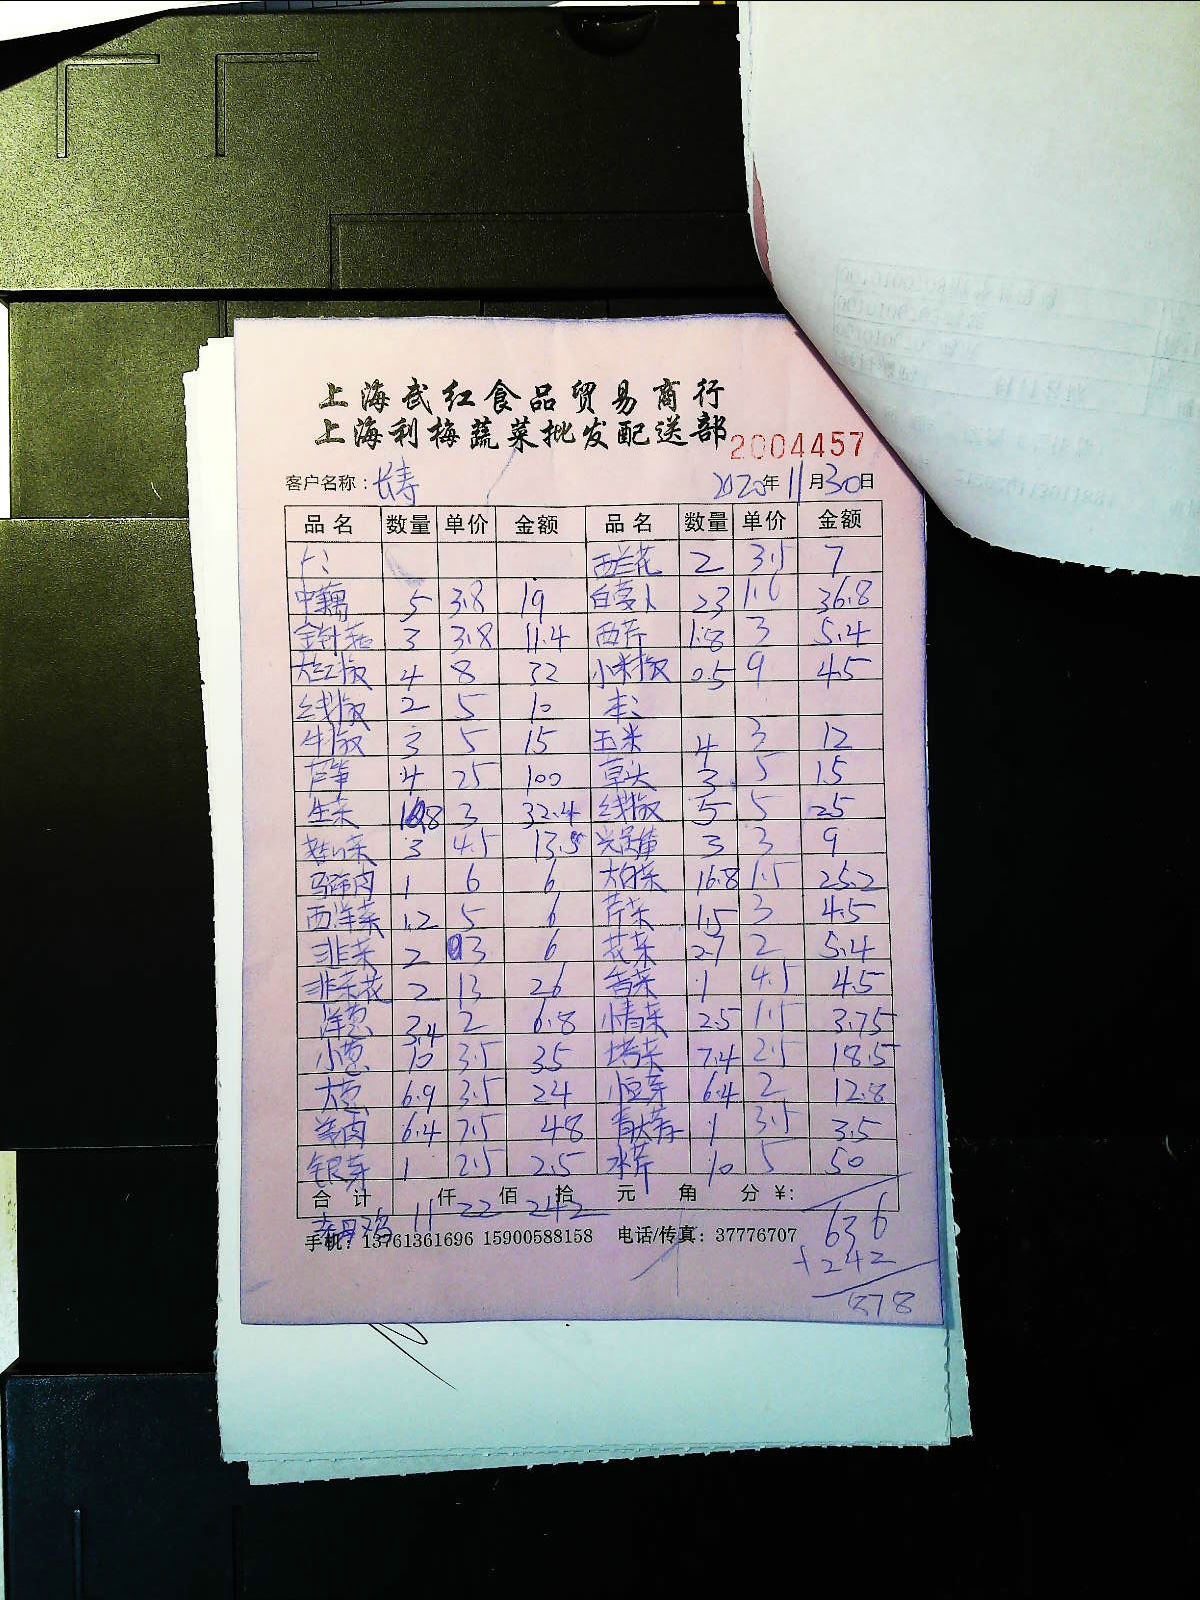 上海武红食品贸易商行
上海利梅蔬菜批发配送部 2004457
客户名称：长寿 2020年11月30日
品名 数量 单价 金额 品名 数量 单价 金额
上: 西兰花 2 3.5 7
中藕 5 3.8 19 白萝卜 23 1.6 36.8
金针菇 3 3.8 11.4 西芹 1.8 3 5.4
大红椒 4 8 32 小米椒 0.5 9 4.5
线椒 2 5 10 本:
牛椒 3 5 15 玉米 4 3 12
芦笋 4 25 100 草头 3 5 15
生菜 10.8 3 32.4 线椒 5 5 25
3 4.5 13.5 3 3 9
马蹄肉 1 6 6 大白菜 16.8 1.5 25.2
西洋菜 1.2 5 6 芹菜 1.5 3 4.5
韭菜 2 3 6 花菜 2.7 2 5.4
韭菜花 2 13 26 香菜 1 4.5 4.5
洋葱 3.4 2 6.8 小青菜 2.5 1.5 3.75
小葱 10 3.5 35 塔菜 7.4 2.5 18.5
大葱 6.9 3.5 24 小豆芽 6.4 2 12.8
姜肉 6.4 7.5 48 青大蒜 1 3.5 3.5
银芽 1 2.5 2.5 水芹 10 5 50
合计 仟 佰 拾 元 角 分 ¥:
鸡 11 22 242
636
手机：13761361696 15900588158 电话/传真：37776707
+242
878